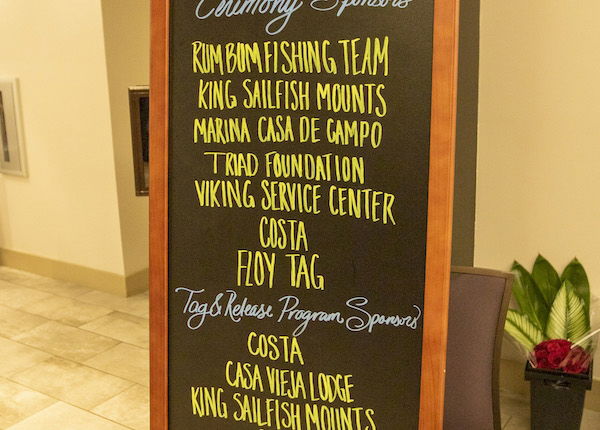 Cerimony Sponsors
RUM BUM FISHING TEAM
KING SAILFISH MOUNTS
MARINA CASA DE CAMPO
TRIAD FOUNDATION
VIKING SERVICE CENTER
COSTA
FLOY TAG
Tag & Release Program Sponsors
COSTA
CASA VIEJA LODGE
KING SAILFISH MOUNTS